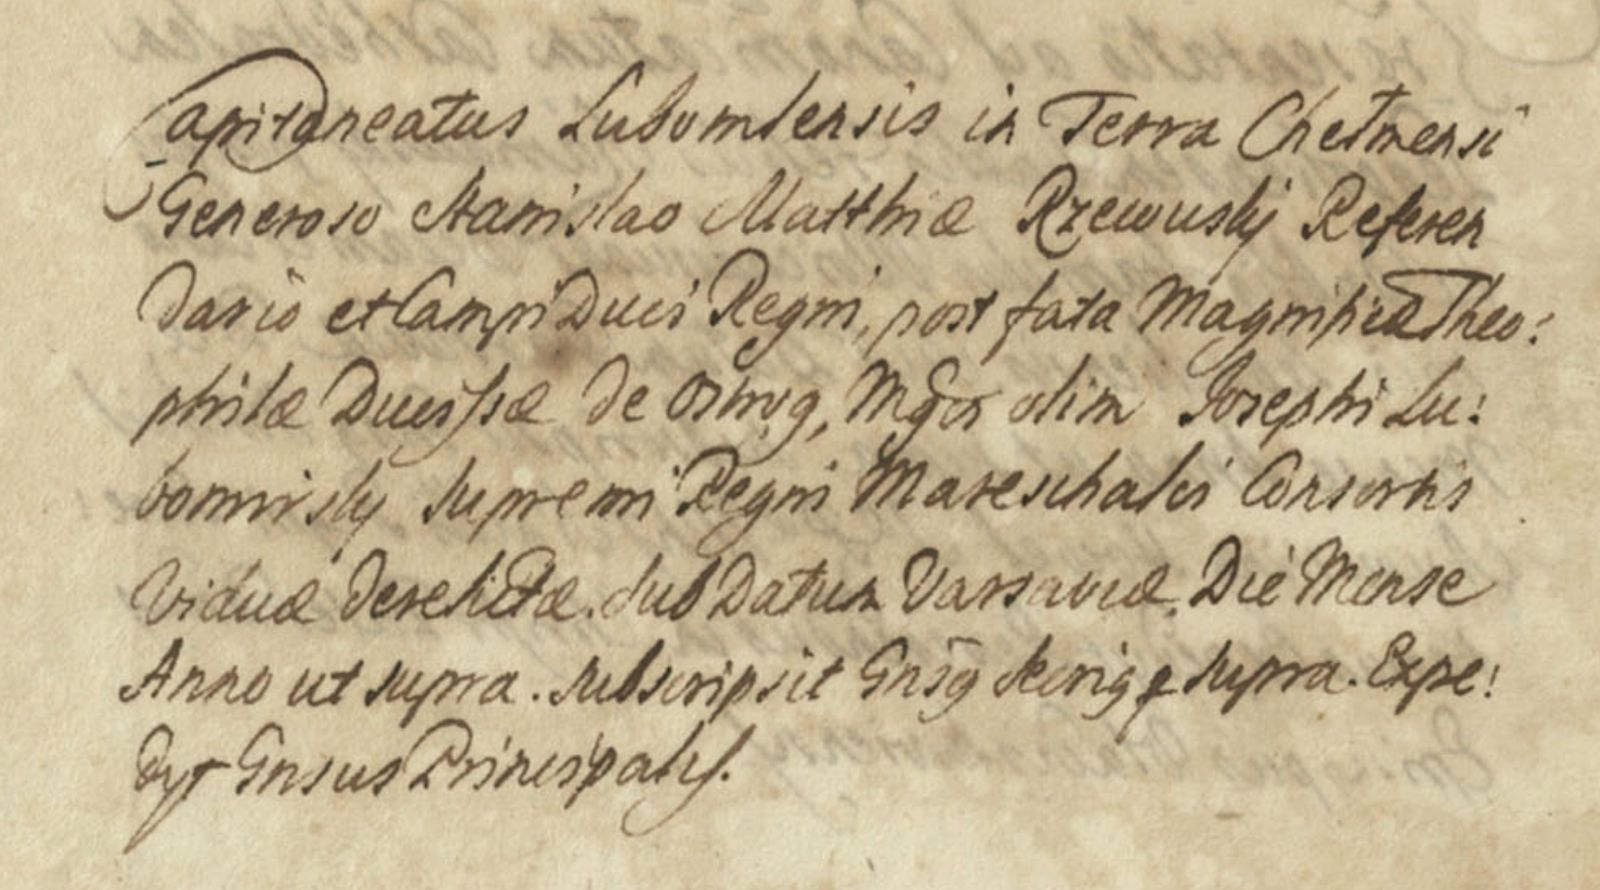 Capitaneatus Lubomlensis in Terra Chelmensi
Generoso Stanislao Matthiæ Rzewusky Referen
dario et Campi Duci Regni, post fata Magnificæ Theo:
philæ Ducissæ de Ostrog, Mgci olim Josephi Lu:
bomirsky Supremi Regni Mareschalci Consortis
Viduæ derelictæ. Sub Datum Varsaviæ. Die Mense
Anno ut supra. Subscripsit supra. Expe:
dyt Gnsus Principalis.